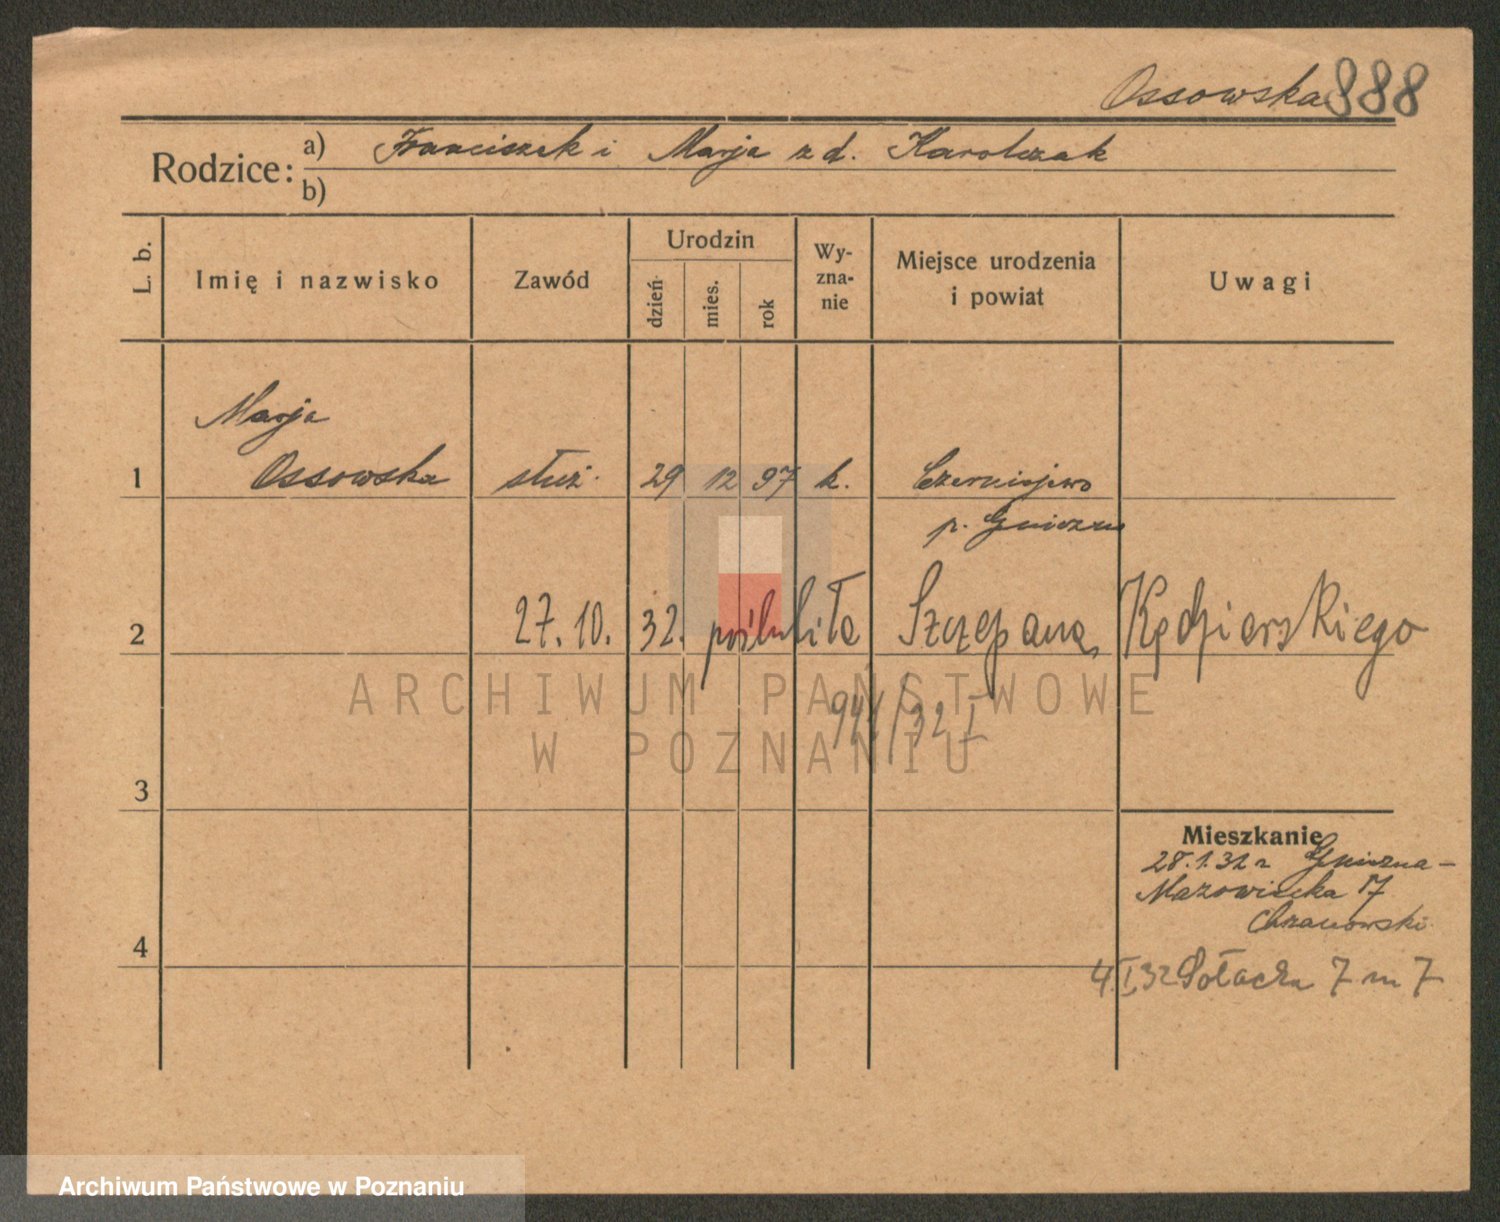 Ossowska 888
Rodzice: a) Franciszek i Marja z d. Karolczak
b)
L. b. Imię i nazwisko Zawód Urodzin dzień mies. rok Wyzna-nie Miejsce urodzenia i powiat Uwagi
Marja
1 Ossowska służ. 29 12 97 k. Czerniejewo
p. Gniezno
2 27. 10. 32. poślubiła Szczepana Kędzierskiego
941/32 I
3
Mieszkanie
28.1.32 r Gniezna -
Mazowiecka 7
Chranowski
4
4.I 32 Sołacka 7 m 7
ARCHIWUM PAŃSTWOWE
W POZNANIU
Archiwum Państwowe w Poznaniu